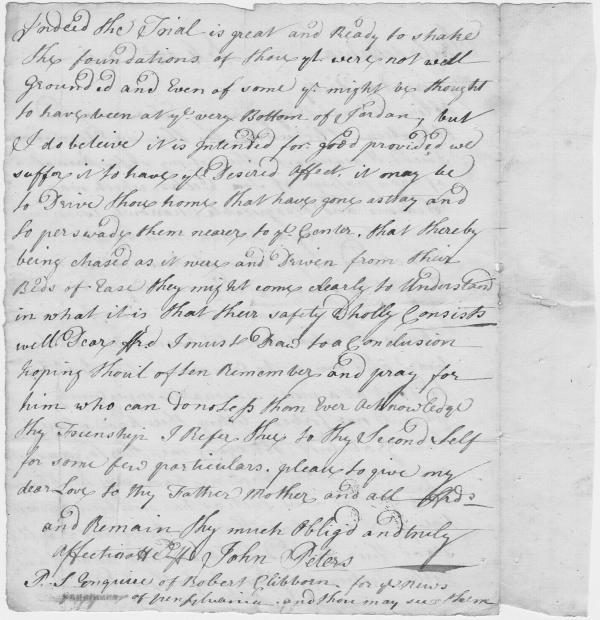 Indeed the Trial is great and Ready to shake
the foundations of those yt. were not well
Grounded and Even of some yt. might be thought
to have been at ye very Bottom of Jordan, but
I do beleive it is intended for good provided we
suffer it to have ye Desired Affect. it may be
to Drive those home that have gone astray and
to perswade them nearer to ye Center. that thereby
being chased as it were and Driven from their
Beds of Ease they might come clearly to Understand
in what it is that their safety Wholly Consists
well Dear ffrd I must Draw to a Conclusion
hoping thou'l often Remember and pray for
him who can do no Less than Ever Acknowledge
thy Frienship I Refer thee to thy Second Self
for some few particulars. please to give my
dear Love to thy Father Mother and all ffrds
and Remain thy much Oblig'd and truly
John Peters
P.S Enquire of Robert Clibborn for ye News
of pensylvania. and thou may see them